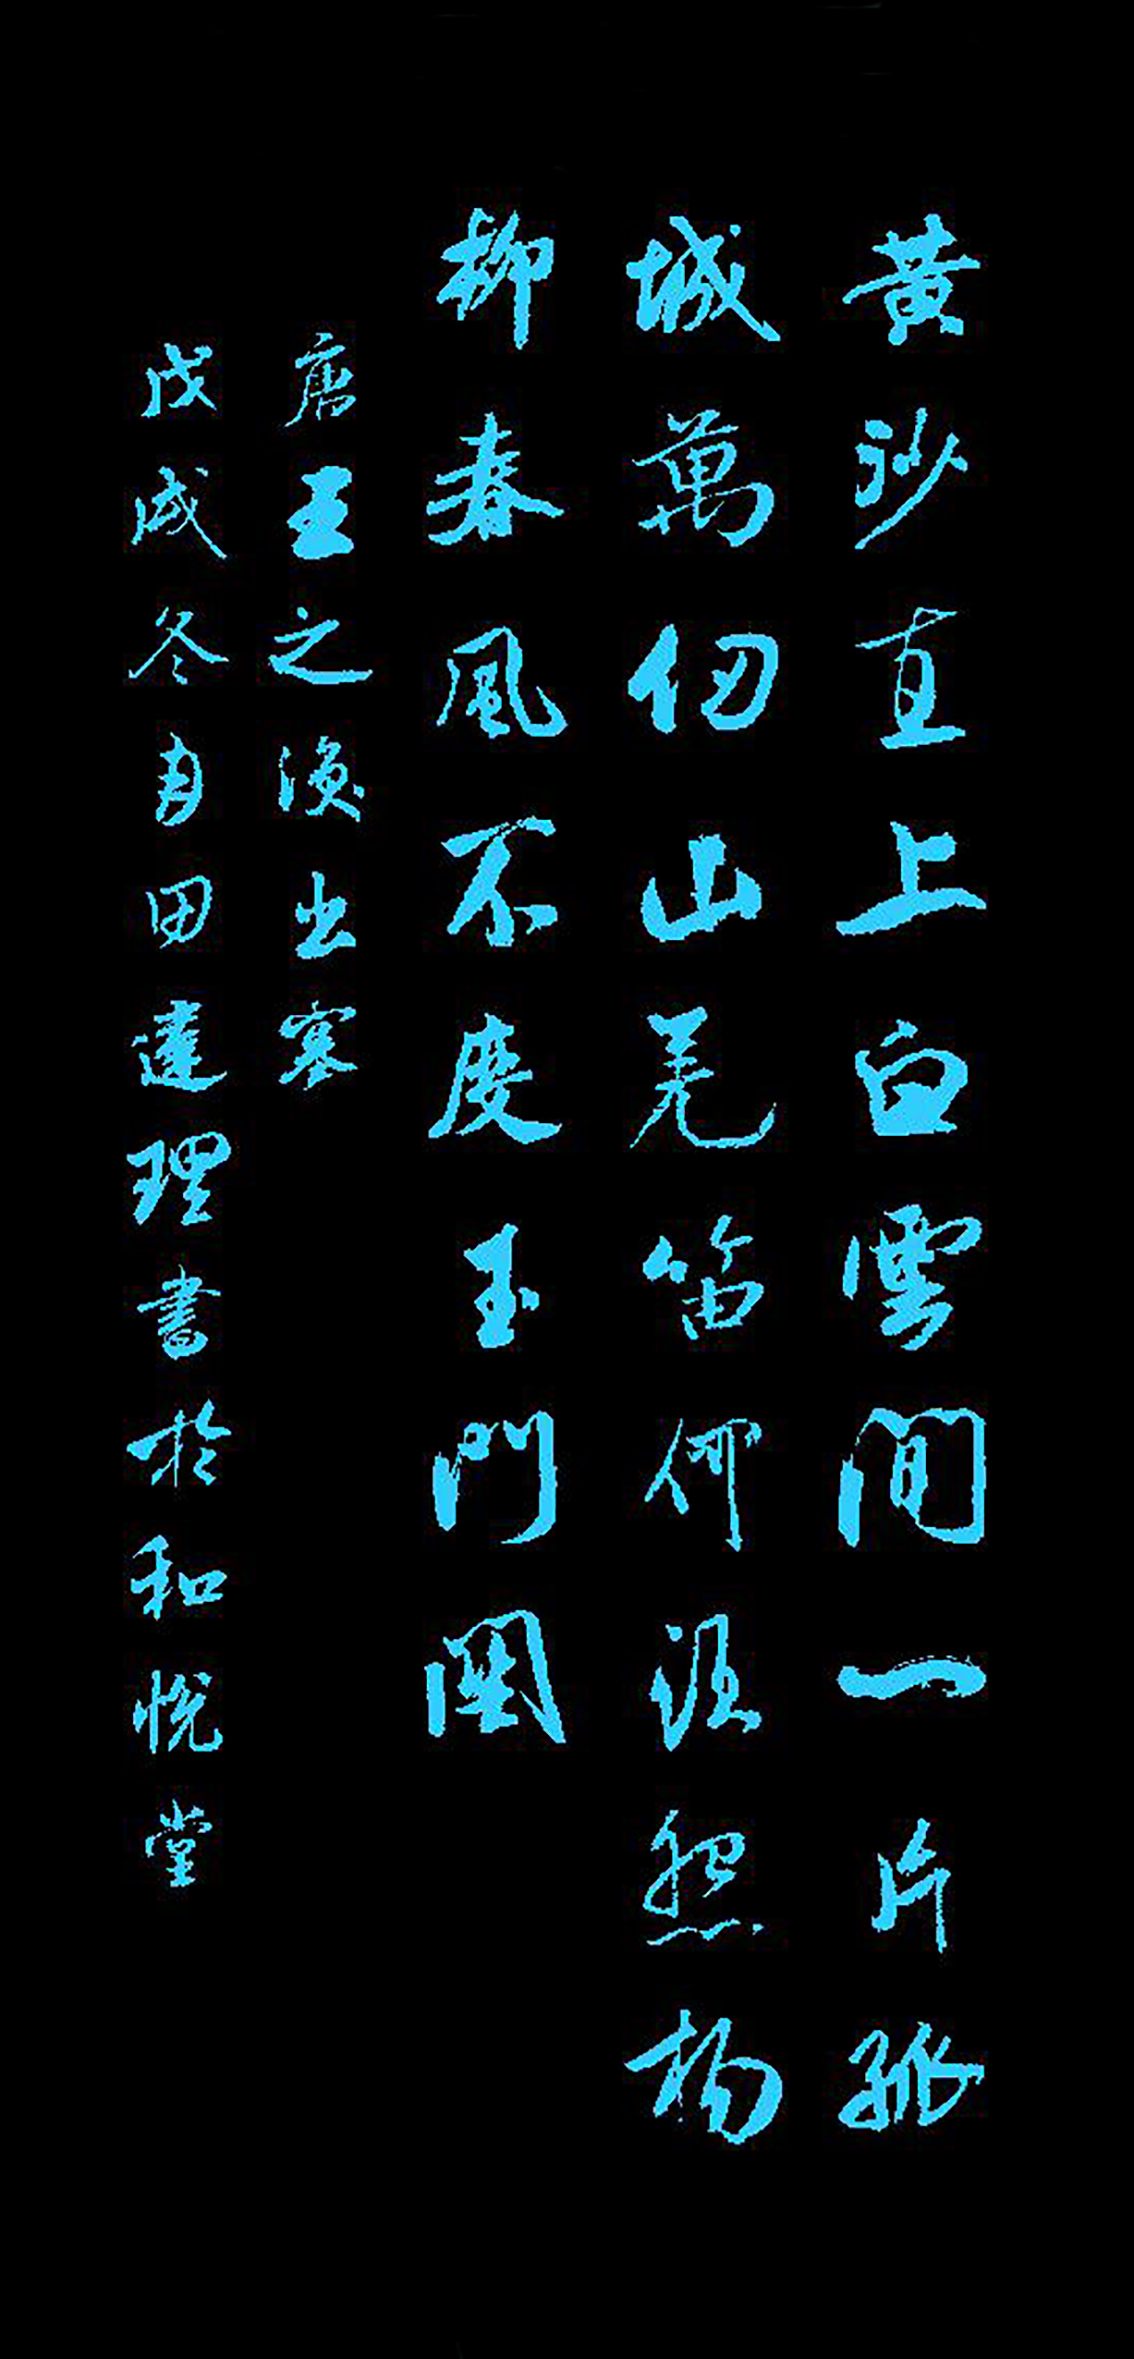 黃沙直上白雲間一片孤
城萬仞山羌笛何須怨楊
柳春風不度玉門關
唐王之渙出塞
戊戌冬月田達理書於和悅堂